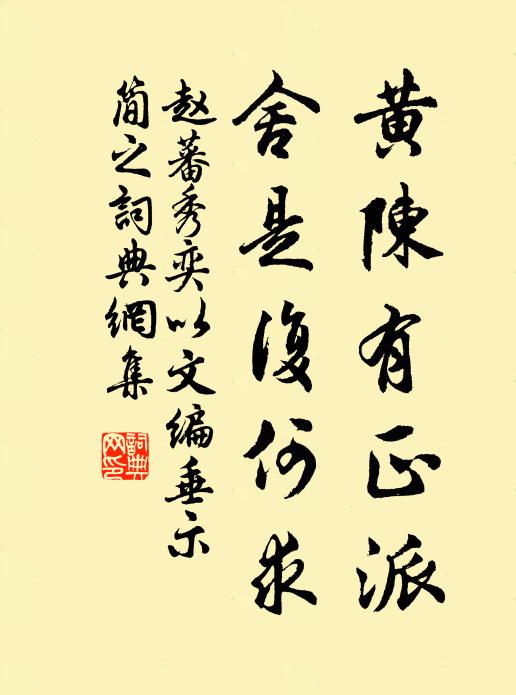 黄陳有正派
舍是復何求
赵蕃秀奕以文编垂示
简之詞典網集
詞典網印